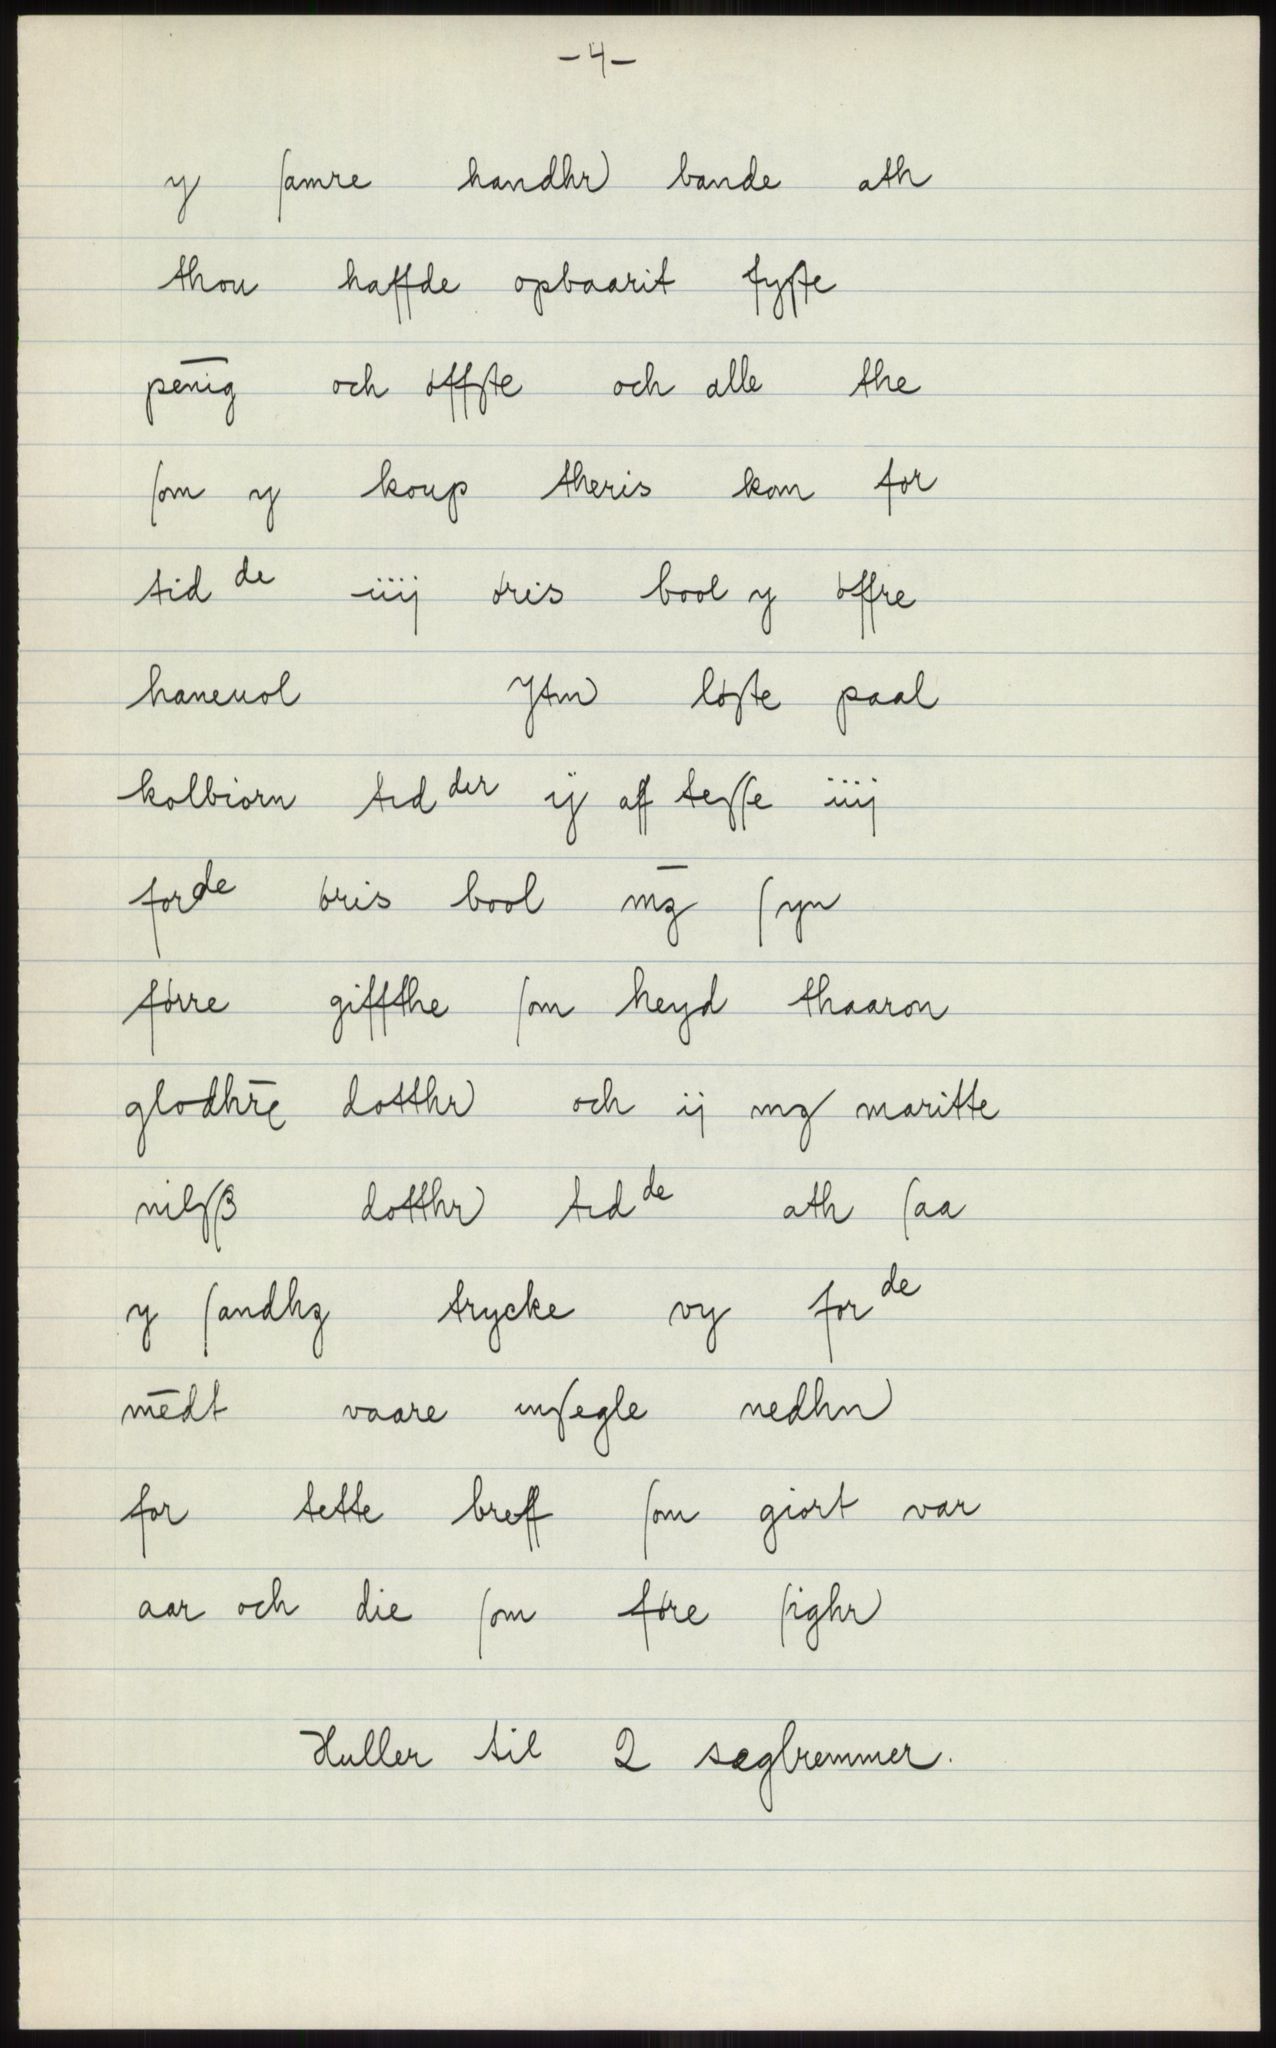 -4-
y ſamre handhr bande ath
thou haffde opbaarit fyſte
pēnig och øffſte och alle the
ſom y koup theris kom for
tid de iiij øris bool y øffre
haneuol Ytm løſte paal
kolbiørn tid der ij aff teſſe iiij
forde øris bool m̄z ſyn
førre giffthe ſom heyd thaaron
glodhr̄e dotthr och ij mz maritte
nilſß dotthr tid de ath ſaa
y ſandhz trycke vy for de
mēdt vaare inſegle nedhn
for tette breff ſom giort var
aar och die ſom føre ſighr
Huller til 2 seglremmer.